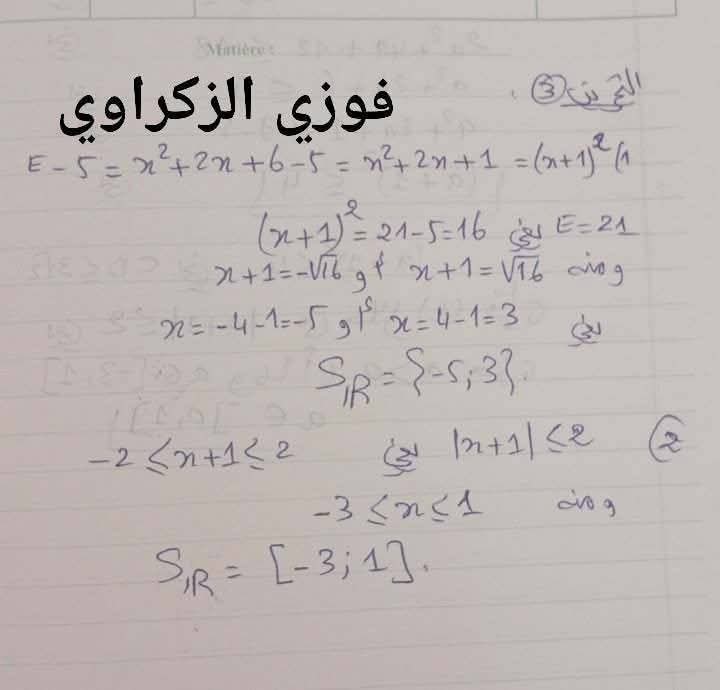 Matière :
التمرين 3
فوزي الزكراوي
1) E - 5 = x²+2x+6-5 = x²+2x+1 = (x+1)²
E=21 يعني (x+1)² = 21-5=16
ومنه x+1=√16 أو x+1=-√16
يعني x=4-1=3 أو x=-4-1=-5
S_IR = {-5;3}.
2) |x+1| ≤2 يعني -2 ≤x+1≤2
ومنه -3 ≤x≤ 1
S_IR = [-3;1].